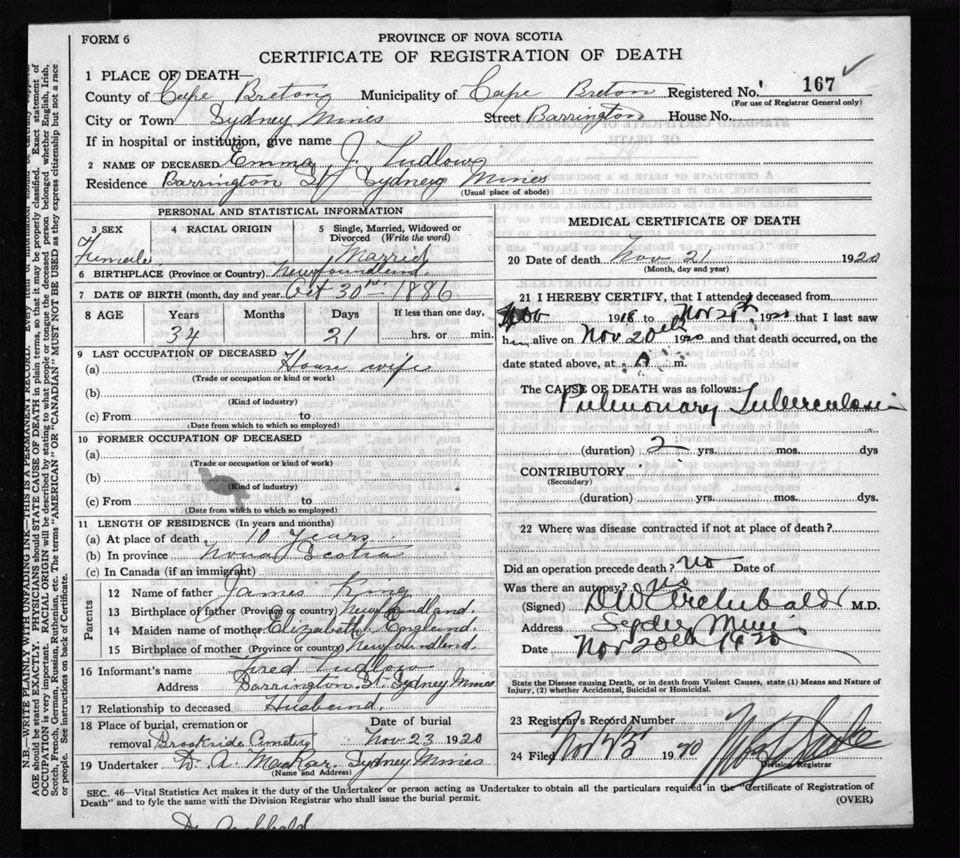 FORM 6
PROVINCE OF NOVA SCOTIA
CERTIFICATE OF REGISTRATION OF DEATH
1 PLACE OF DEATH—
County of Cape Breton Municipality of Cape Breton Registered No. 167
(For use of Registrar General only)
City or Town Sydney Mines Street Barrington House No.
If in hospital or institution, give name
2 NAME OF DECEASED Emma J. Ludlow
Residence Barrington St Sydney Mines
(Usual place of abode)
PERSONAL AND STATISTICAL INFORMATION
3 SEX 4 RACIAL ORIGIN 5 Single, Married, Widowed or Divorced (Write the word)
Female Married
6 BIRTHPLACE (Province or Country) Newfoundland.
7 DATE OF BIRTH (month, day and year) Oct 30th 1886
8 AGE Years Months Days If less than one day,
34 21 hrs. or min.
9 LAST OCCUPATION OF DECEASED
(a) House wife
(Trade or occupation or kind or work)
(b)
(Kind of industry)
(c) From to
(Date from which to which so employed)
10 FORMER OCCUPATION OF DECEASED
(a)
(Trade or occupation or kind of work)
(b)
(Kind of industry)
(c) From to
(Date from which to which so employed)
11 LENGTH OF RESIDENCE (In years and months)
(a) At place of death 10 years.
(b) In province Nova Scotia
(c) In Canada (if an immigrant)
Parents
12 Name of father James King
13 Birthplace of father (Province or country) Newfoundland.
14 Maiden name of mother Elizabeth England.
15 Birthplace of mother (Province or country) Newfoundland.
16 Informant's name Fred Ludlow
Address Barrington St. Sydney Mines
17 Relationship to deceased Husband.
18 Place of burial, cremation or removal Brookside Cemetery Date of burial Nov 23 1920
19 Undertaker Sydney Mines
(Name and Address)
MEDICAL CERTIFICATE OF DEATH
20 Date of death Nov 21 1920
(Month, day and year)
21 I HEREBY CERTIFY, that I attended deceased from
1918 to Nov 20th 1920 that I last saw
h alive on Nov 20th 1920 and that death occurred, on
date stated above, at A m.
The CAUSE OF DEATH was as follows:
Pulmonary Tuberculosis
(duration) 2 yrs. mos. dys
CONTRIBUTORY
(Secondary)
(duration) yrs. mos. dys.
22 Where was disease contracted if not at place of death?
Did an operation precede death? No Date of
Was there an autopsy? No
(Signed) D W Archibald M.D.
Address Sydney Mines
Date Nov 20th 1920
State the Disease causing Death, or in death from Violent Causes, state (1) Means and Nature of Injury, (2) whether Accidental, Suicidal or Homicidal.
23 Registrar's Record Number
24 Filed Nov 23 19
Division Registrar
SEC. 46—Vital Statistics Act makes it the duty of the Undertaker or person acting as Undertaker to obtain all the particulars required in the "Certificate of Registration of
Death" and to fyle the same with the Division Registrar who shall issue the burial permit. (OVER)
Dr Archibald
N.B.—WRITE PLAINLY WITH UNFADING INK—THIS IS A PERMANENT RECORD.
AGE should be stated EXACTLY. PHYSICIANS should STATE CAUSE OF DEATH in plain terms, so that it may be properly classified. Exact statement of
OCCUPATION is very important. RACIAL ORIGIN will be described by stating to what people or tongue the deceased person belonged whether English, Irish,
Scotch, French, German, Russian, Ruthenian, etc. The terms "AMERICAN" OR "CANADIAN" MUST NOT BE USED as they express citizenship but not a race
or people. See instructions on back of Certificate.